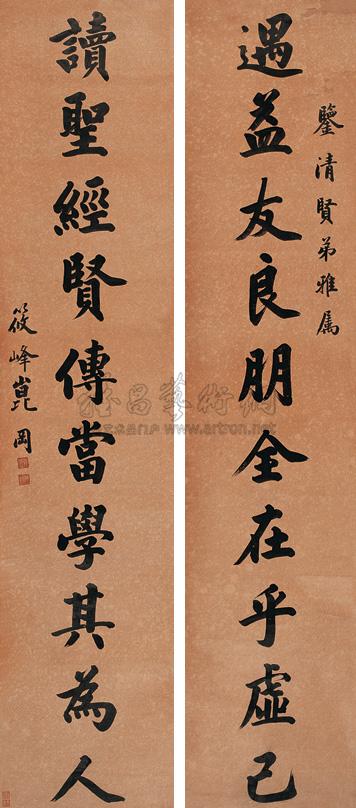 鑒清賢弟雅属
遇益友良朋全在乎虛己
讀聖經賢傳當學其為人
筱峰崑岡
雅昌藝術網
www.artron.net